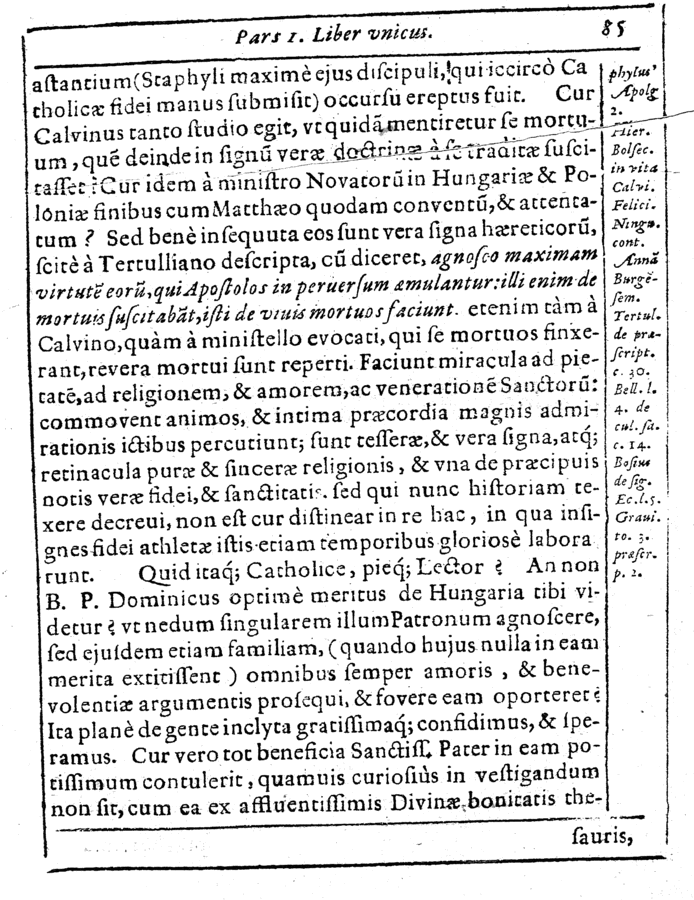 Pars 1. Liber vnicus. 85
aſtantium (Staphyli maximè ejus diſcipuli, qui iccircò Ca
tholicæ fidei manus ſubmiſit) occurſu ereptus fuit. Cur
Calvinus tanto ſtudio egit, vt quidã mentiretur ſe mortu-
um, quẽ deinde in ſignũ veræ doctrinæ à ſe traditæ ſuſci-
taſſet? Cur idem à miniſtro Novatorũ in Hungariæ & Po-
loniæ finibus cum Matthæo quodam conventũ, & attenta-
tum? Sed benè inſequuta eos ſunt vera ſigna hæreticorũ,
ſcitè à Tertulliano deſcripta, cũ diceret, agnoſco maximam
virtutẽ eorũ, qui Apoſtolos in peruerſum æmulantur: illi enim de
mortuis ſuſcitabãt, iſti de viuis mortuos faciunt. etenim tàm à
Calvino, quàm à miniſtello evocati, qui ſe mortuos finxe-
rant, revera mortui ſunt reperti. Faciunt miracula ad pie-
tatẽ, ad religionem, & amorem, ac venerationẽ Sanctorũ:
commovent animos, & intima præcordia magnis admi-
rationis ictibus percutiunt; ſunt teſſeræ, & vera ſigna, atq;
retinacula puræ & ſinceræ religionis, & vna de præcipuis
notis veræ fidei, & ſanctitatis. ſed qui nunc hiſtoriam te-
xere decreui, non eſt cur diſtinear in re hac, in qua inſi-
gnes fidei athletæ iſtis etiam temporibus glorioſè labora
runt. Quid itaq; Catholice, pieq; Lector? An non
B. P. Dominicus optimè meritus de Hungaria tibi vi-
detur? vt nedum ſingularem illum Patronum agnoſcere,
ſed ejuſdem etiam familiam, (quando hujus nulla in eam
merita extitiſſent) omnibus ſemper amoris, & bene-
volentiæ argumentis proſequi, & fovere eam oporteret?
Ita planè de gente inclyta gratiſſimaq; confidimus, & ſpe-
ramus. Cur vero tot beneficia Sanctiſſ. Pater in eam po-
tiſſimum contulerit, quamuis curioſiùs in veſtigandum
non ſit, cum ea ex affluentiſſimis Divinæ bonitatis the-
ſauris,
phylus'
Apolg
2.
Hier.
Bolſec.
in vita
Calvi.
Felici.
Ningu.
cont.
Annã
Burgẽ-
ſem.
Tertul.
de præ-
ſcript.
c. 30.
Bell. l.
4. de
cul. ſã.
c. 14.
Boſius
de ſig.
Ec. l. 5.
Graui.
to. 3.
præſcr.
p. 2.